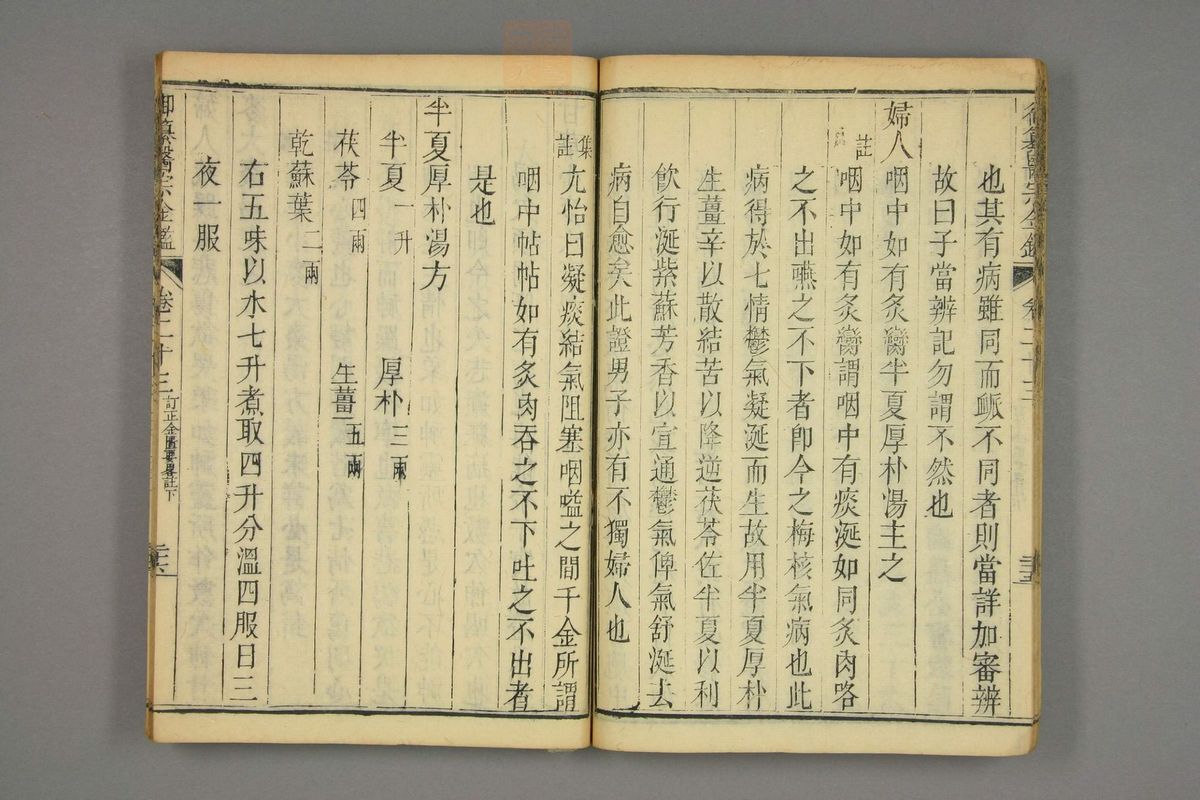 御纂醫宗金鑑 卷二十三
也其有病雖同而䘐不同者則當詳加審辨
故曰子當辨記勿謂不然也
婦人咽中如有炙臠半夏厚朴湯主之
註咽中如有炙臠謂咽中有痰涎如同炙肉咯
之不出嚥之不下者卽今之梅核氣病也此
病得於七情鬱氣凝涎而生故用半夏厚朴
生薑辛以散結苦以降逆茯苓佐半夏以利
飲行涎紫蘇芳香以宣通鬱氣俾氣舒涎去
病自愈矣此證男子亦有不獨婦人也
集註尤怡曰凝痰結氣阻塞咽嗌之間千金所謂
咽中帖帖如有炙肉吞之不下吐之不出者
是也
半夏厚朴湯方
半夏一升 厚朴三兩
茯苓四兩 生薑五兩
乾蘇葉二兩
右五味以水七升煮取四升分溫四服日三
夜一服
御纂醫宗金鑑 卷二十三 訂正金匱要畧註下